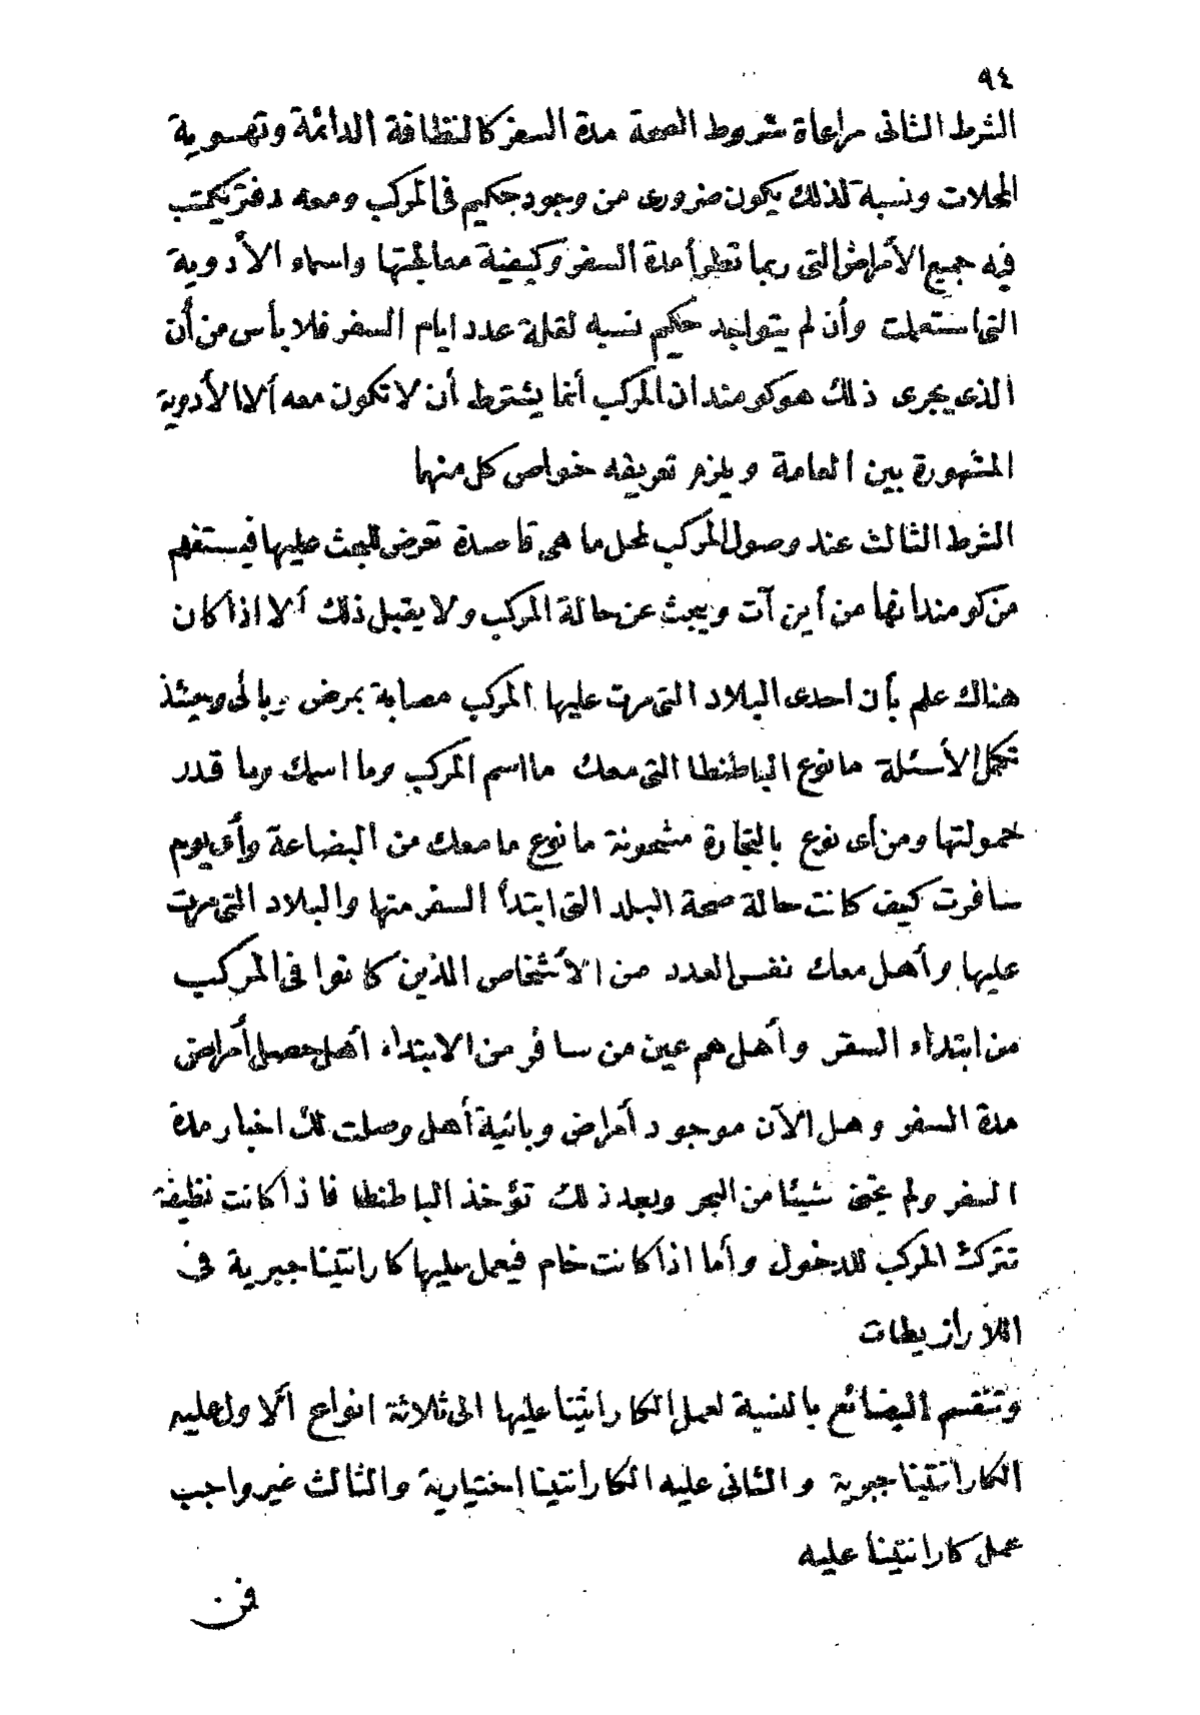 ٩٤
الشرط الثانى مراعاة شروط الصحة مدة السفر كالنظافة الدائمة وتهوية
المحلات ونسبة لذلك يكون ضرورى من وجود حكيم فى المركب ومعه دفتر يكتب
فيه جميع الأمراض التى ربما تطرأ مدة السفر وكيفية معالجتها واسماء الأدوية
التى استعملت وأن لم يتواجد حكيم نسبه لقلة عدد ايام السفر فلا بأس من أن
الذى يجرى ذلك هو كومندان المركب أنما يشترط أن لا تكون معه ألا الأدوية
المشهورة بين العامة ويلزم تعريفه خواص كل منها
الشرط الثالث عند وصول المركب لمحل ما هى قاصدة تعرض للبحث عليها فيستفهم
من كومندانها من أين آت ويبحث عن حالة المركب ولا يقبل ذلك ألا اذا كان
هناك علم بأن احدى البلاد التى مرت عليها المركب مصابة بمرض وبائى وحينئذ
تكمل الأسئلة ما نوع الباطنطا التى معك ما اسم المركب وما اسمك وما قدر
حمولتها ومن أى نوع بالتجارة مشحونة ما نوع ما معك من البضاعة وأى يوم
سافرت كيف كانت حالة صحة البلد التى ابتدأ السفر منها والبلاد التى مرت
عليها وأهل معك نفس العدد من الأشخاص اللذين كانوا فى المركب
من ابتداء السفر وأهل هم عين من سافر من الابتداء أهل حصل أمراض
مدة السفر وهل الآن موجود أمراض وبائية أهل وصلت لك اخبار مدة
السفر ولم تخف شيئا من البحر وبعد ذلك تؤخذ الباطنطا فاذا كانت نظيفة
تترك المركب للدخول وأما اذا كانت خام فيعمل عليها كارانتينا جبرية فى
اللازاريطات
وتنقسم البضائع بالنسبة لعمل الكارانتينا عليها الى ثلاثة انواع ألاول عليه
الكارانتينا جبرية والثانى عليه الكارانتينا اختيارية والثالث غير واجب
عمل كارانتينا عليه
فن